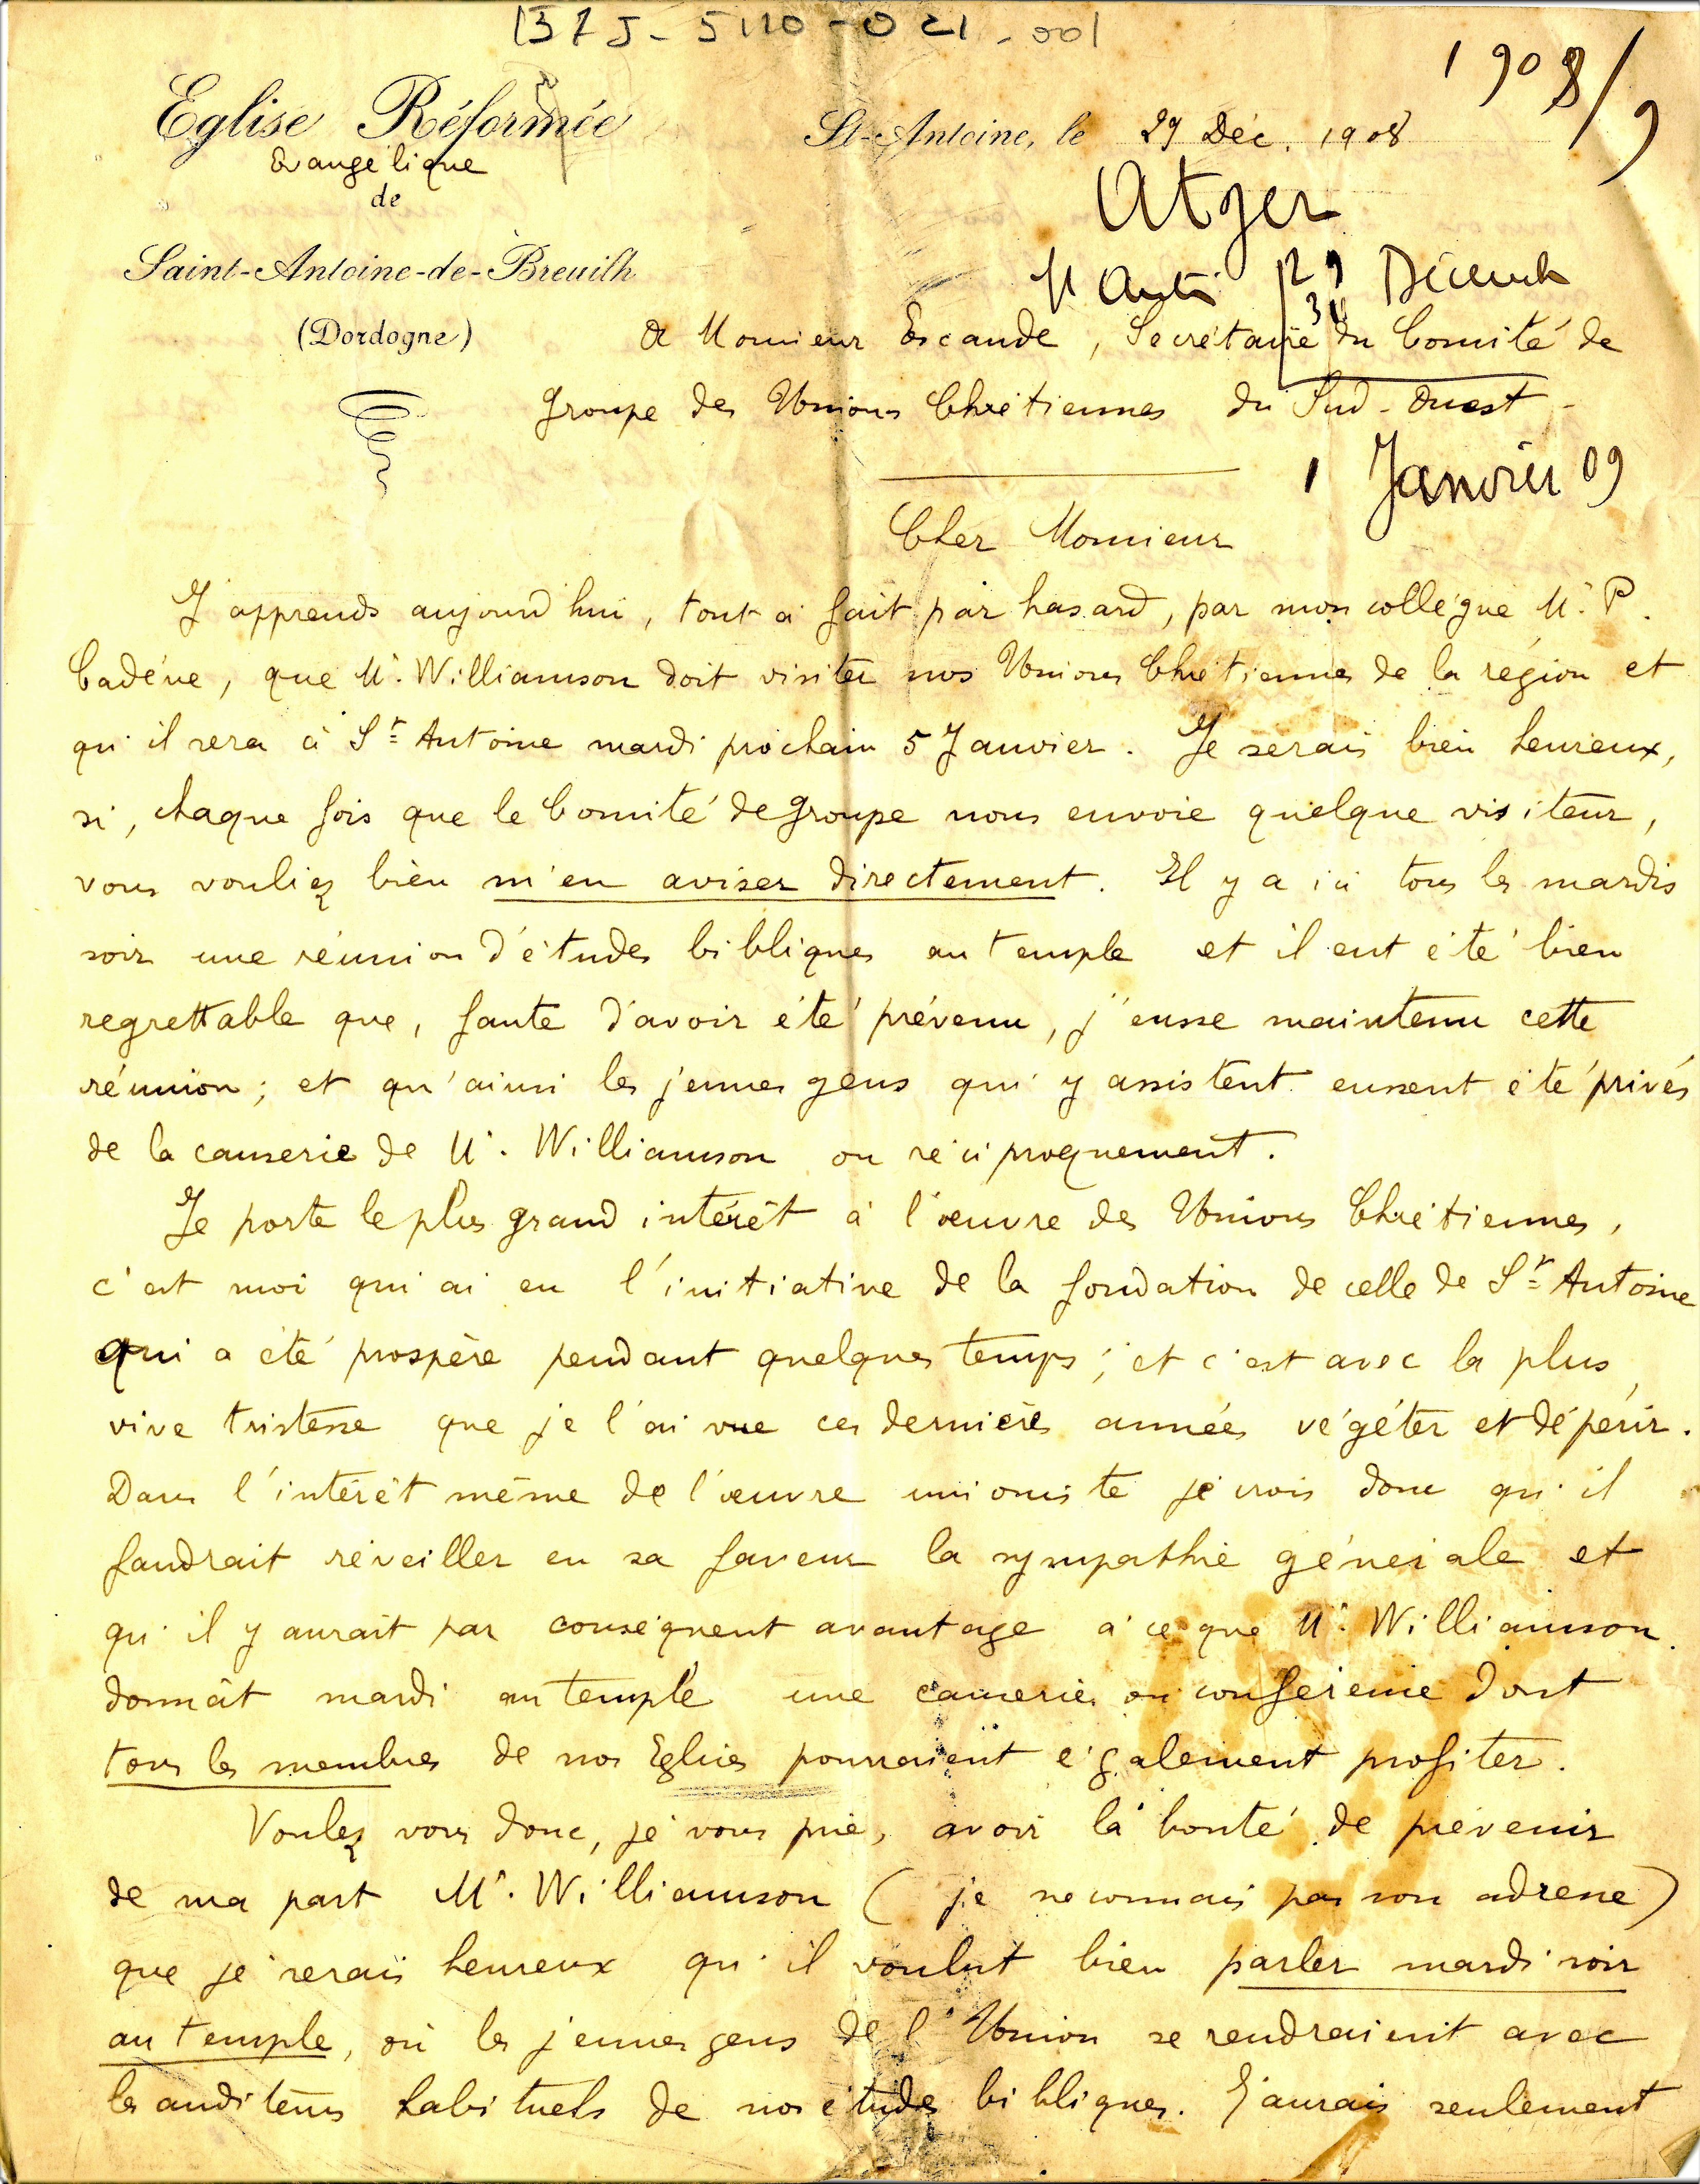 137J-5110-021-001
1908/9
Eglise Réformée
Evangélique
de
Saint-Antoine-de-Breuilh
(Dordogne)
St-Antoine, le 29 Déc. 1908
Atger
St Antoi 29 Décemb
30
A Monsieur Escande, Secrétaire du Comité de
Groupe des Unions Chrétiennes du Sud-Ouest -
1 Janvier 09
Cher Monsieur
J'apprends aujourd'hui, tout à fait par hasard, par mon collègue Mr. P.
Cadène, que Mr. Williamson doit visiter nos Unions Chrétiennes de la région et
qu'il sera à St Antoine mardi prochain 5 Janvier. Je serais bien heureux,
si, chaque fois que le Comité de Groupe nous envoie quelque visiteur,
vous vouliez bien m'en aviser directement. Il y a ici tous les mardis
soir une réunion d'études bibliques au temple et il eut été bien
regrettable que, faute d'avoir été prévenu, j'eusse maintenu cette
réunion ; et qu'ainsi les jeunes gens qui y assistent eussent été privés
de la causerie de Mr. Williamson ou réciproquement.
Je porte le plus grand intérêt à l'œuvre des Unions Chrétiennes,
c'est moi qui ai eu l'initiative de la fondation de celle de St Antoine
qui a été prospère pendant quelques temps ; et c'est avec la plus
vive tristesse que je l'ai vue ces dernières années végéter et dépérir.
Dans l'intérêt même de l'œuvre unioniste je crois donc qu'il
faudrait réveiller en sa faveur la sympathie générale et
qu'il y aurait par conséquent avantage à ce que Mr. Williamson
donnât mardi au temple une causerie ou conférence dont
tous les membres de nos Eglises pourraient également profiter.
Voulez vous donc, je vous prie, avoir la bonté de prévenir
de ma part Mr. Williamson (je ne connais pas son adresse)
que je serais heureux qu'il voulut bien parler mardi soir
au temple, où les jeunes gens de l'Union se rendraient avec
les auditeurs habituels de nos études bibliques. J'aurais seulement